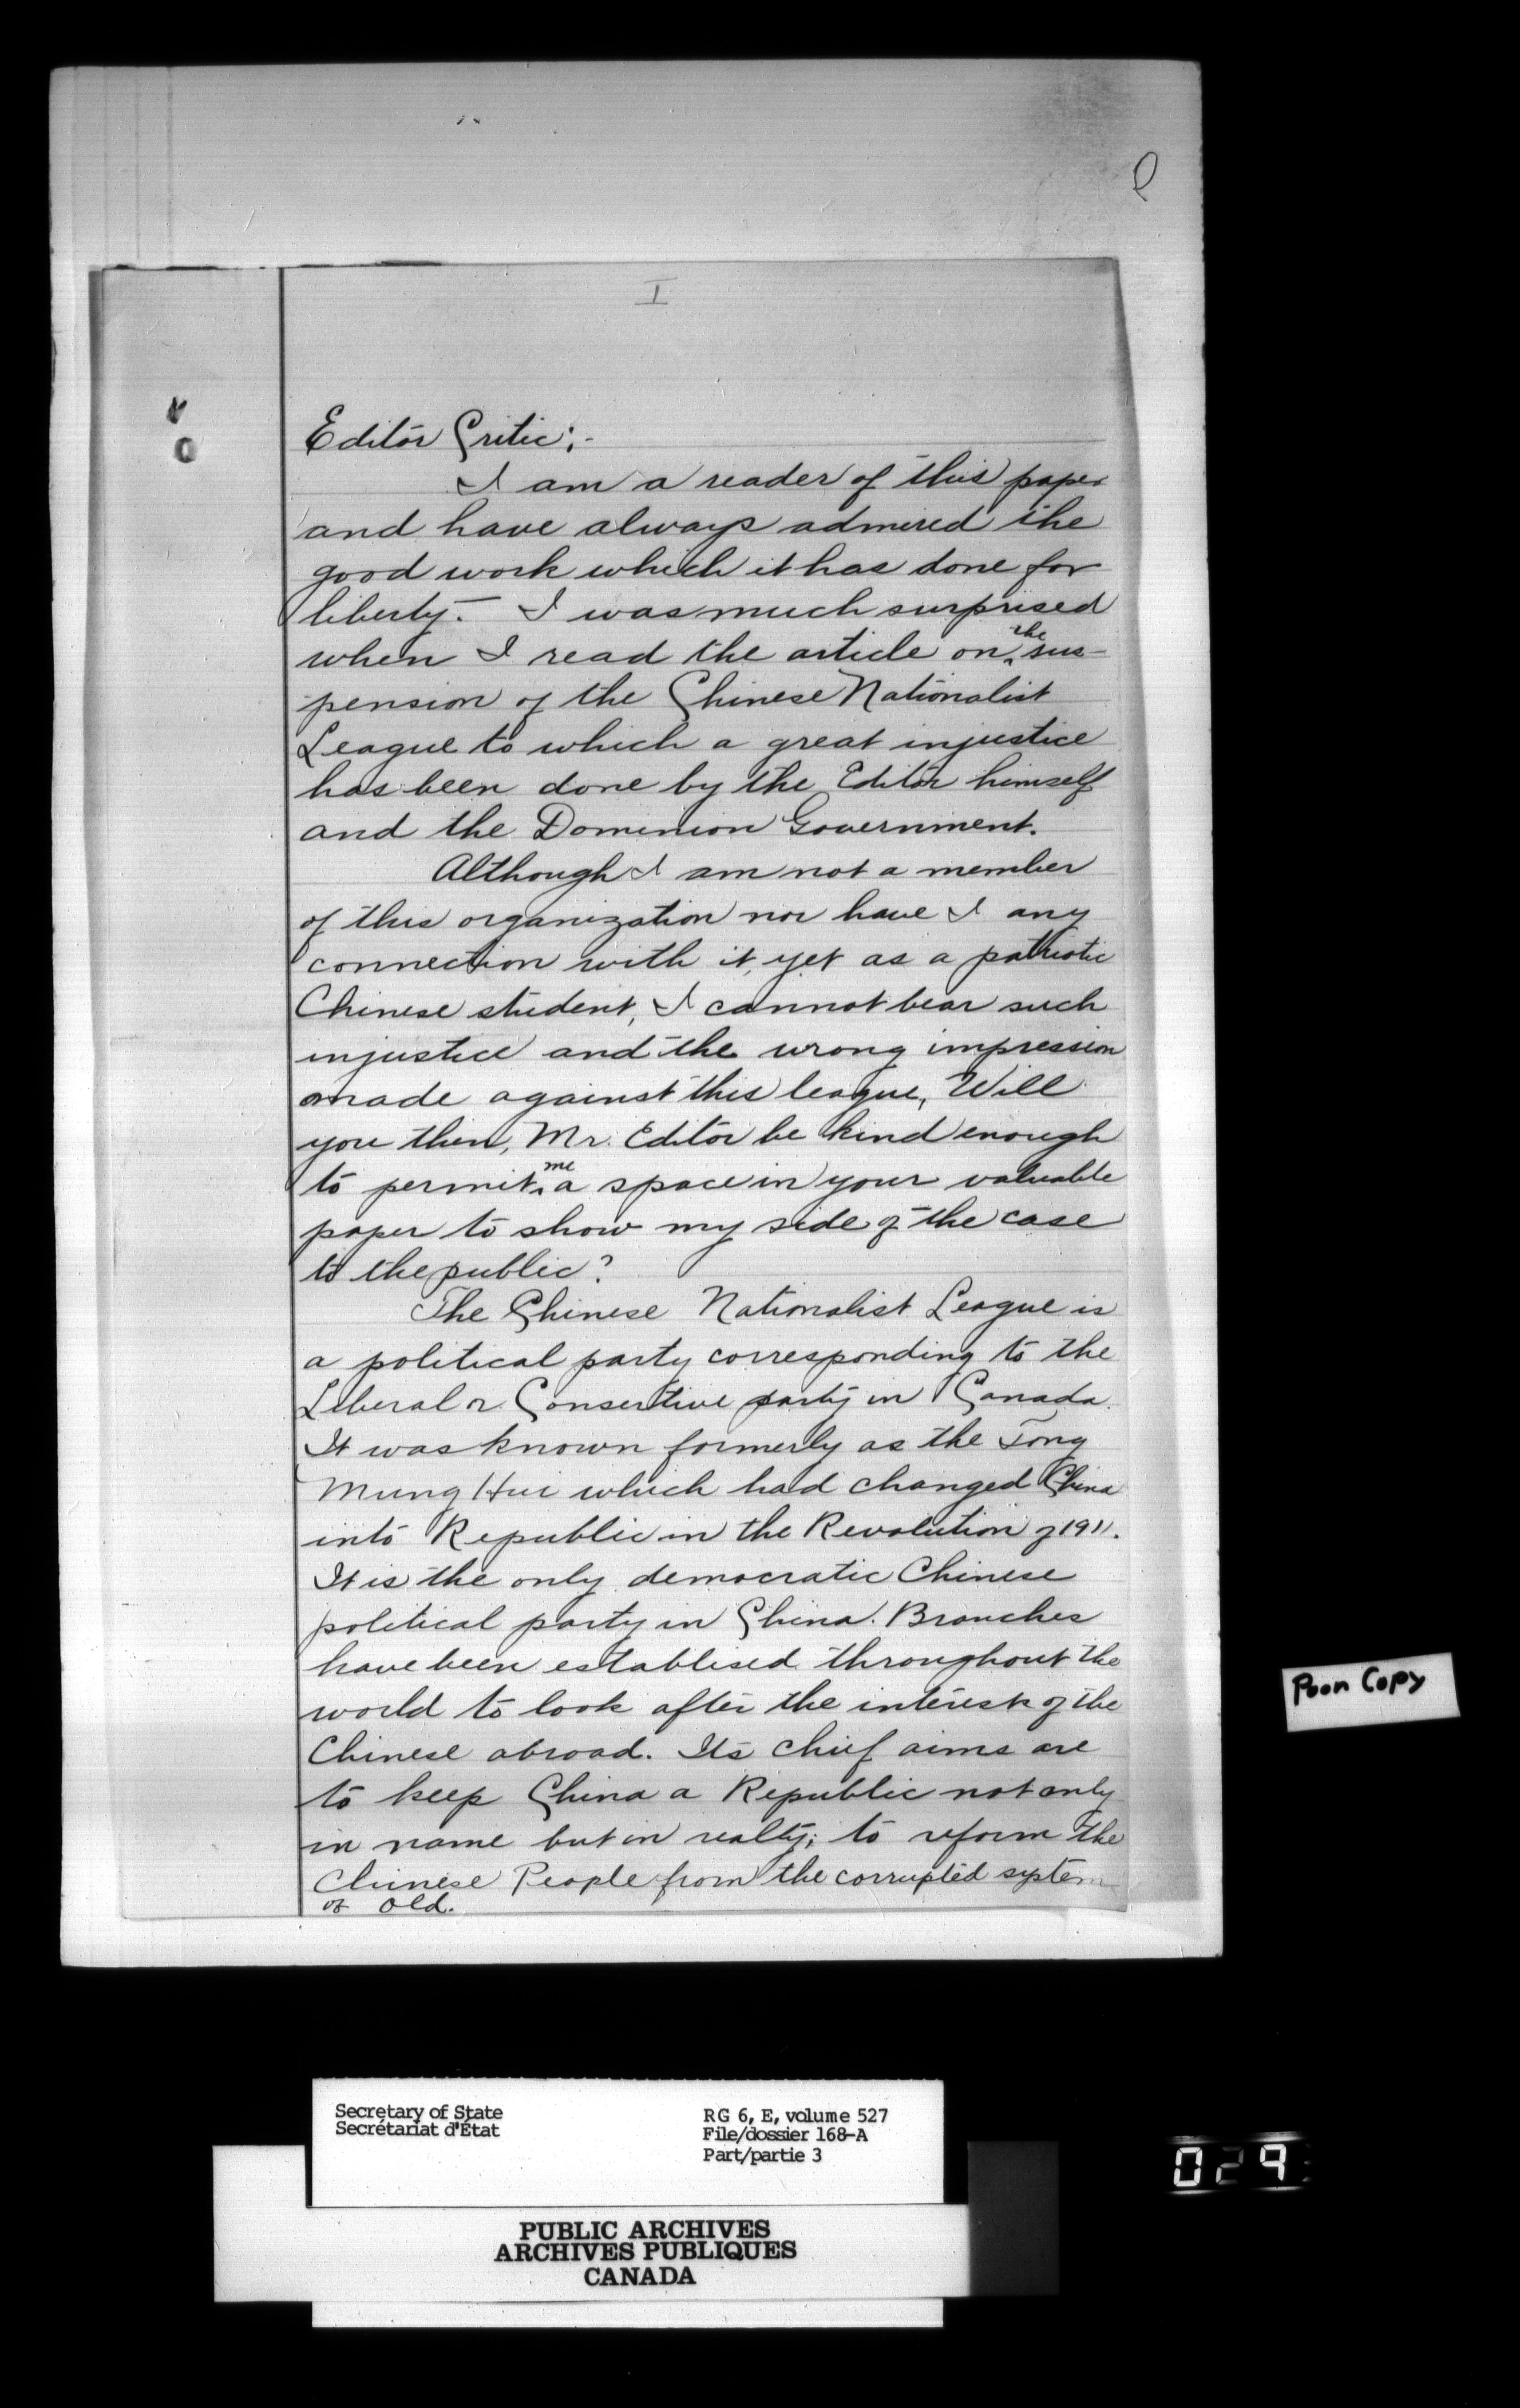 I
Editor Critic:-
I am a reader of this paper
and have always admired the
good work which it has done for
liberty. I was much surprised
when I read the article on the sus-
pension of the Chinese Nationalist
League to which a great injustice
has been done by the Editor himself
and the Dominion Government.
Although I am not a member
of this organization nor have I any
connection with it, yet as a patriotic
Chinese student, I cannot bear such
injustice and the wrong impression
made against this league, Will
you then, Mr. Editor be kind enough
to permit me a space in your valuable
paper to show my side of the case
to the public?
The Chinese Nationalist League is
a political party corresponding to the
Liberal or Consertive party in Canada.
It was known formerly as the Tong
Mung Hui which had changed China
into Republic in the Revolution of 1911.
It is the only democratic Chinese
political party in China. Branches
have been establised throughout the
world to look after the interest of the
Chinese abroad. Its chief aims are
to keep China a Republic not only
in name but in realty; to reform the
Chinese People from the corrupted system
of old.
Poon Copy
Secretary of State
Secrétariat d'État
RG 6, E, volume 527
File/dossier 168-A
Part/partie 3
PUBLIC ARCHIVES
ARCHIVES PUBLIQUES
CANADA
029